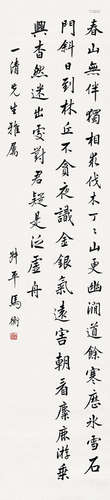 春山無伴獨相求伐木丁丁山更幽澗道餘寒歷冰雪石
門斜日到林丘不貪夜識金銀氣遠害朝看麋鹿游乗
興杳然迷出處對君疑是泛虛舟
一清先生雅屬
叔平馬衡